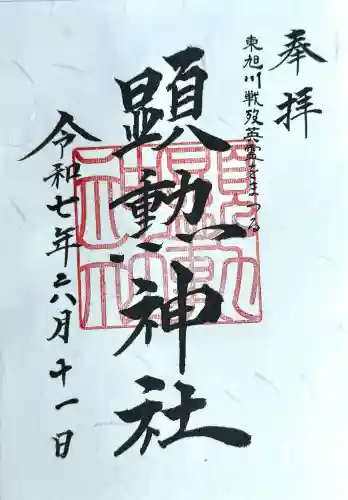 奉拝
東旭川戦歿英霊をまつる
顕勲神社
令和七年八月十一日